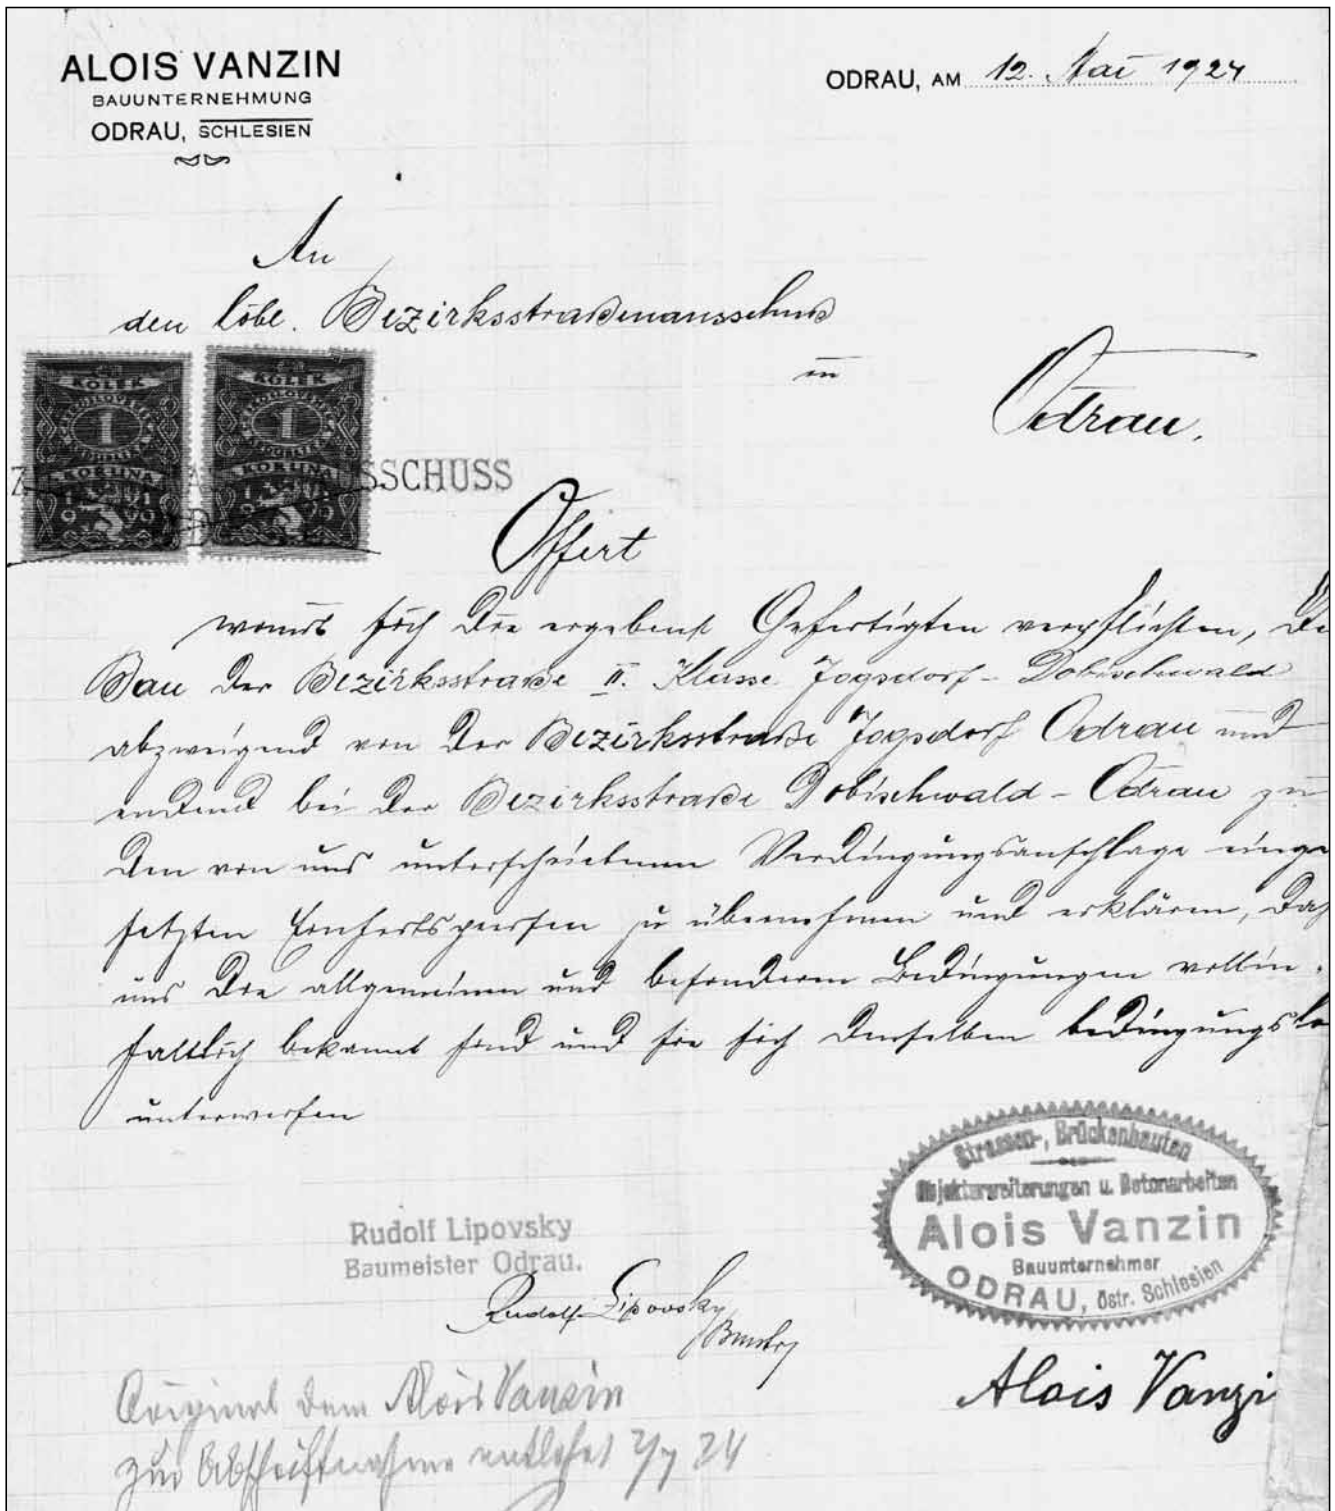 ALOIS VANZIN
BAUUNTERNEHMUNG
ODRAU, SCHLESIEN
ODRAU, AM 12. Mai 1924
An
den löbl. Bezirksstraßenausschuß
in
Odrau.
KOLEK
1
KORUNA
1919
KOLEK
1
KORUNA
1919
USSCHUSS
Offert
womit sich die ergebenst Gefertigten verpflichten, de
Bau der Bezirksstraße II. Klasse Jogsdorf - Dobischwald
abzweigend von der Bezirksstraße Jogsdorf Odrau und
endend bei der Bezirksstraße Dobischwald - Odrau zu
den von uns unterschriebenen Verdingungsanschlage einge
setzten Einheitspreisen zu übernehmen und erklären, daß
uns die allgemeinen und besonderen Bedingungen vollin-
haltlich bekannt sind und sie sich denselben bedingungslo
unterwerfen
Strassen-, Brückenbauten
u. Betonarbeiten
Alois Vanzin
Bauunternehmer
ODRAU, östr. Schlesien
Rudolf Lipovsky
Baumeister Odrau.
Rudolf Lipovsky
Bmstr
Alois Vanzi
Original dem Alois Vanzin
zur Abschriftnahme entlehnt 2/7 24